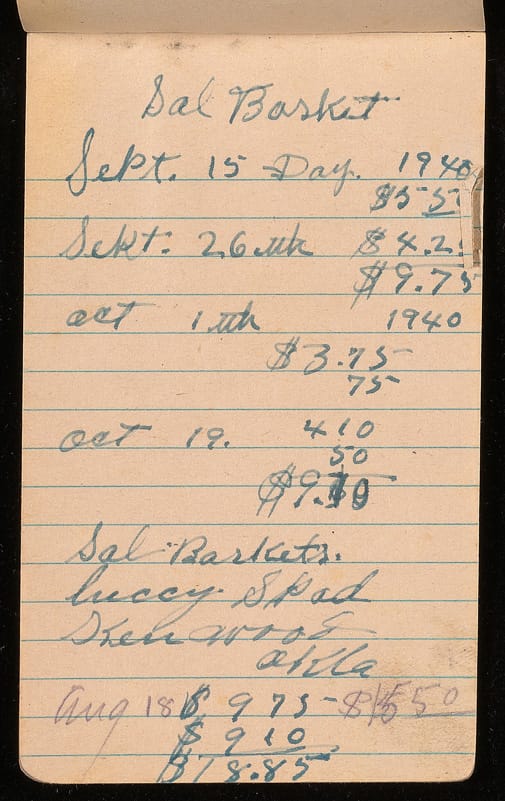 Sal Basket
Sept. 15 Day. 1940
$5 5
Sekt. 26 th $4.2
$9.75
oct 1 th 1940
$3.75
75
oct 19. 410
50
$9.10
Sal Barkets.
luccy Skad
Kenwood
okla
Aug 18 $ 975 $ 5 50
$ 910
$18.85